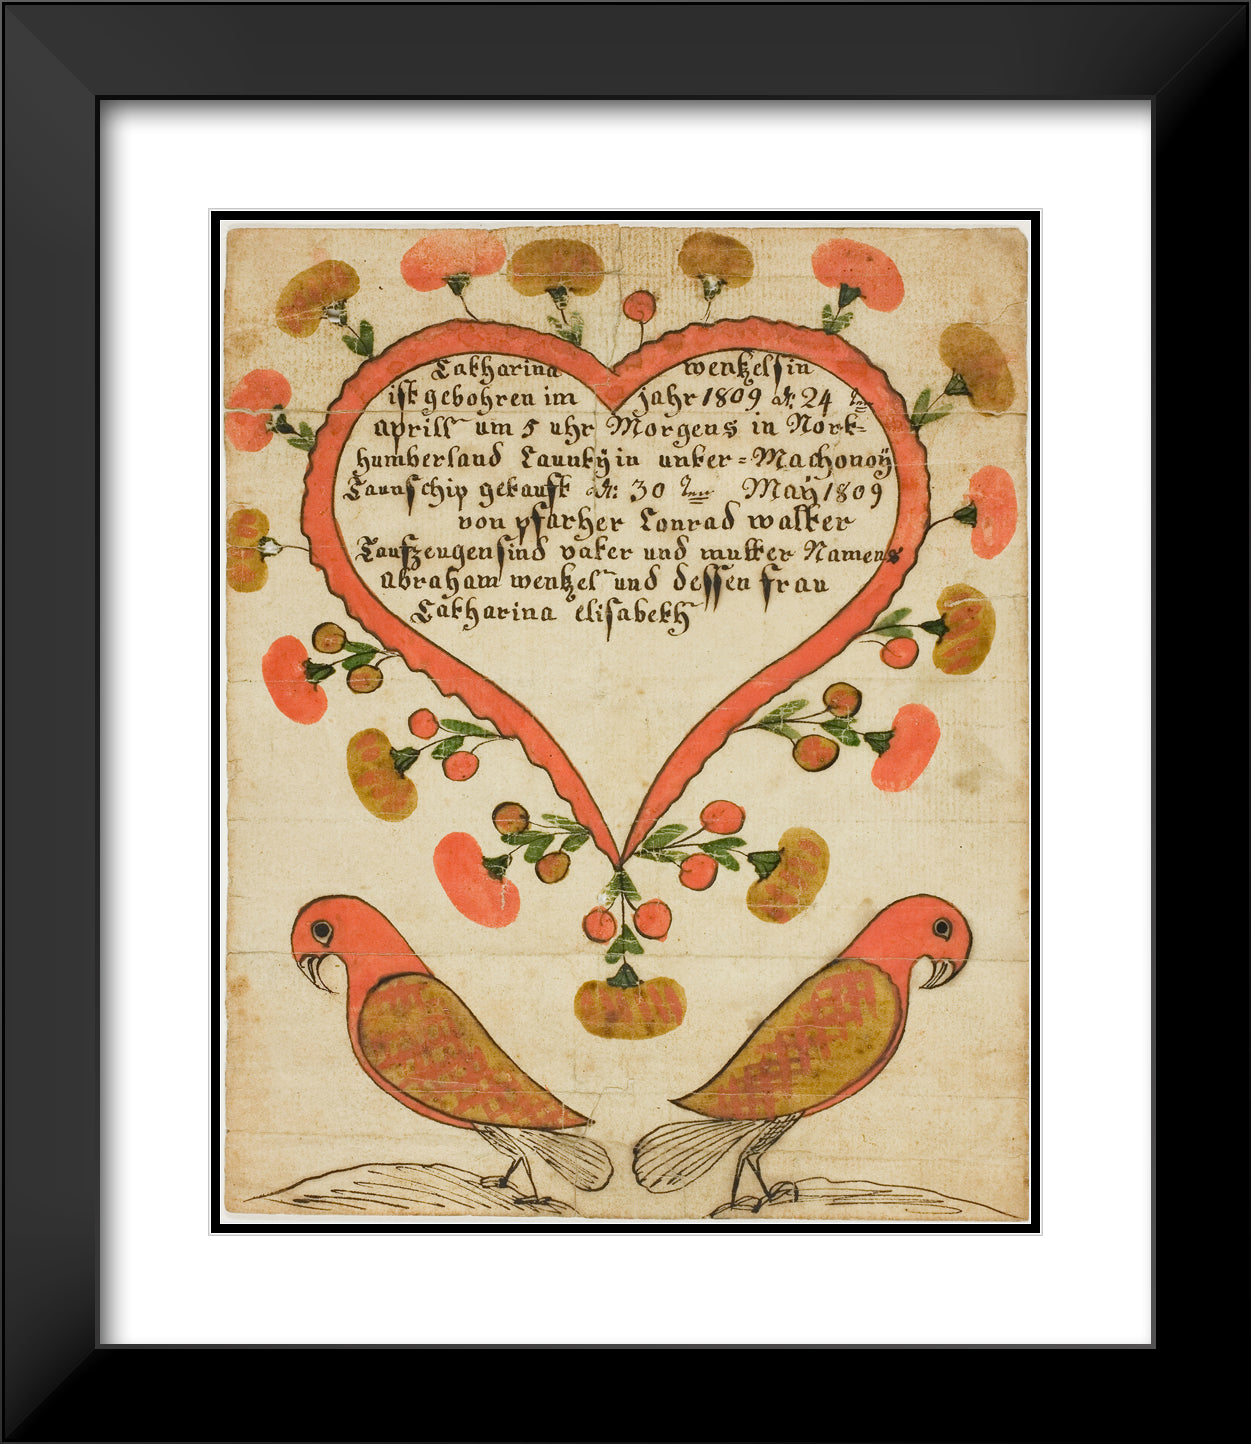 Catharina wentzelsin
ist gebohren im jahr 1809 d: 24 ten
aprill um 5 uhr Morgens in North-
humberland Caunty in unter=Machonoÿ
Taunschip getauft d: 30 ten Maÿ 1809
von pfarher Conrad walter
Taufzeugen sind vater und mutter Namens
abraham wentzel und dessen frau
Catharina elisabeth